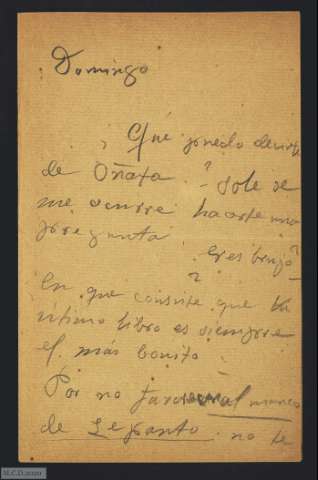 Domingo
¿Qué puedo decirte
de Oñata? Solo se
me ocurre hacerte una
pregunta
Eres brujo?
En que consiste que tu
ultimo libro es siempre
el más bonito?
Por no al manco
de Lepanto no te
M.C.D. 2020